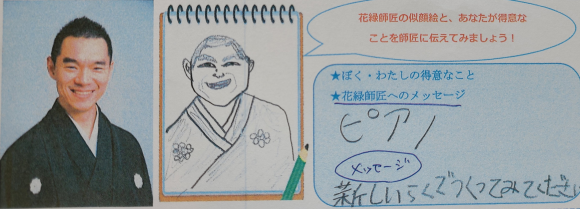 花緑師匠の似顔絵と、あなたが得意な
ことを師匠に伝えてみましょう！
★ぼく・わたしの得意なこと
★花緑師匠へのメッセージ
ピアノ
メッセージ
新しいらくごつくってみてください